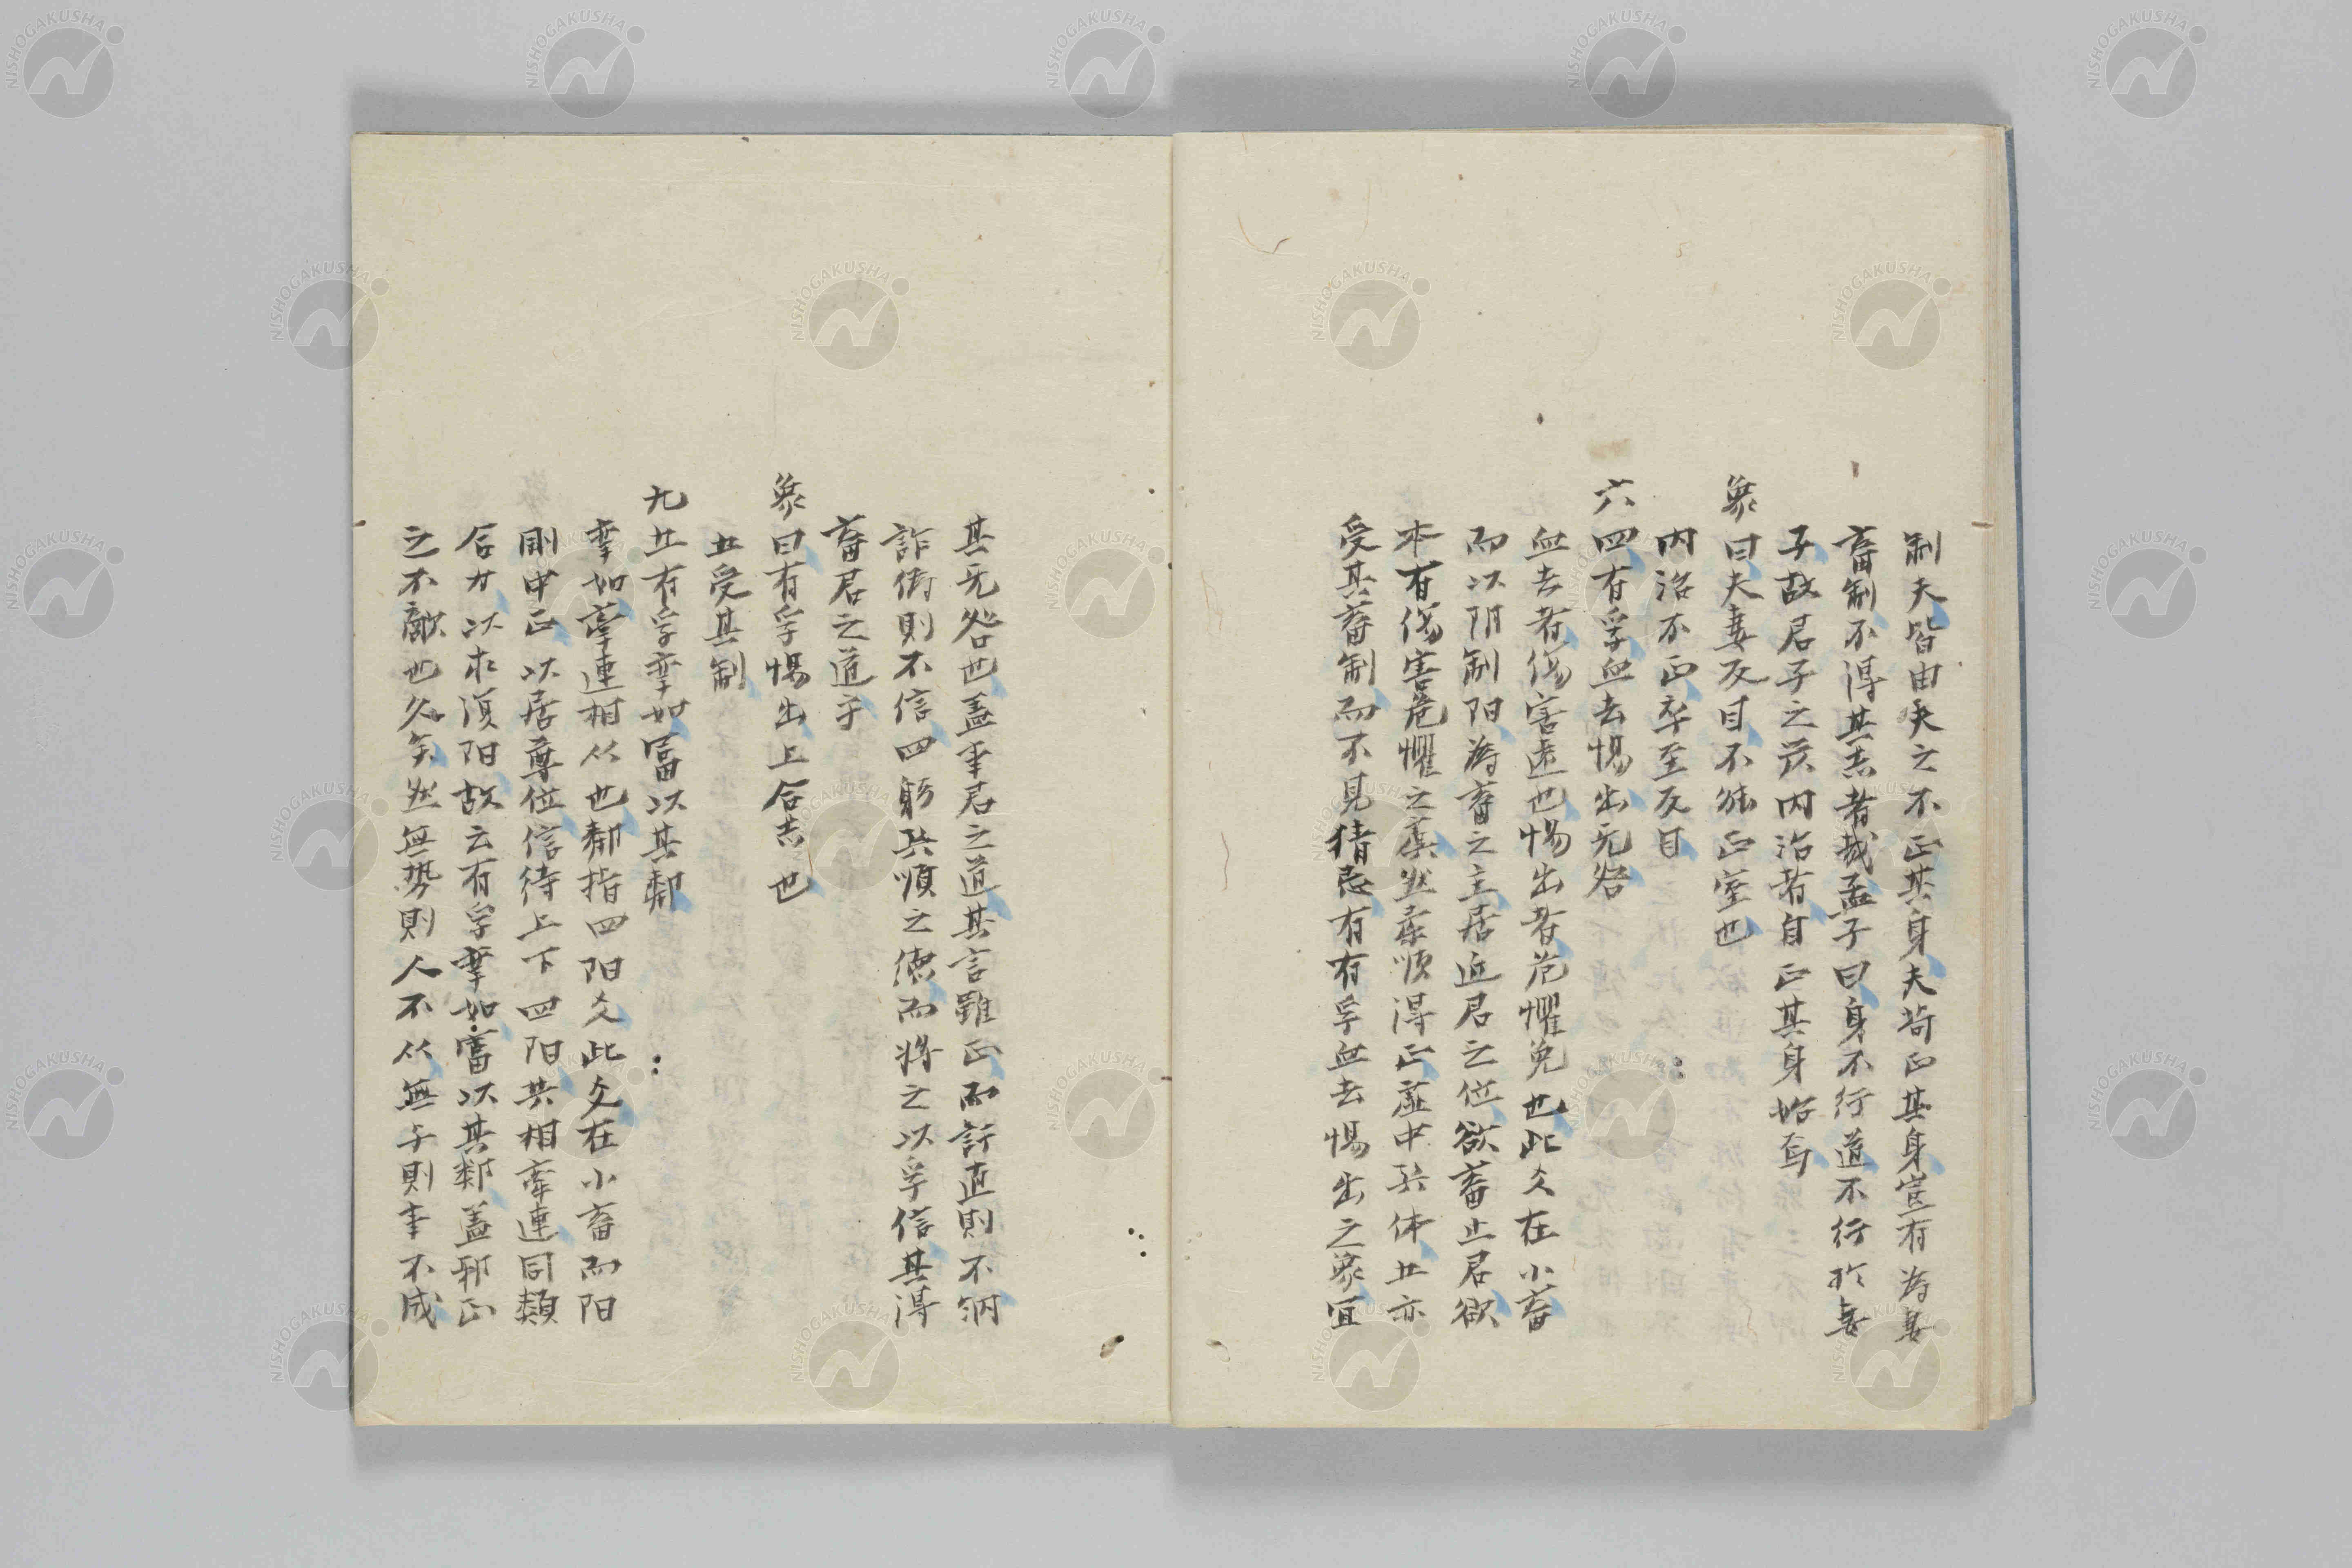 制夫皆由夫之不正其身夫苟正其身豈有為妻
畜制不得其志者哉孟子曰身不行道不行於妻
子故君子之於内治者自正其身始焉
象曰夫妻反目不能正室也
内治不正卒至反目
六四有孚血去惕出无咎
血去者傷害遠也惕出者危懼免也此爻在小畜
而以阴制阳為畜之主居近君之位欲畜止君欲
本有傷害危懼之虞然柔順得正虚中巽体五亦
受其畜制而不見猜忌有有孚血去惕出之象宜
其无咎也盖事君之道其言雖正而訐直則不納
詐術則不信四躬巽順之德而将之以孚信其得
畜君之道乎
象曰有孚惕出上合志也
五受其制
九五有孚攣如富以其鄰
攣如牽連相从也鄰指四阳爻此爻在小畜而阳
剛中正以居尊位信待上下四阳共相牽連同類
合力以求復阳故云有孚攣如富以其鄰盖邪正
之不敵也久矣然無势則人不从無与則事不成
NISHOGAKUSHA